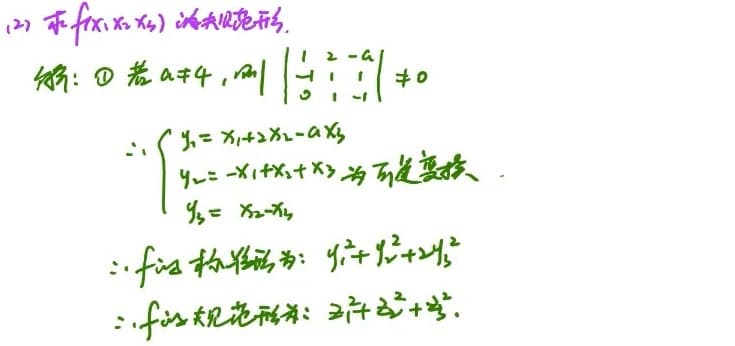 (2) 求f(x₁ x₂ x₃)的规范形.
解: ① 若a≠4, 则 |1 2 -a; -1 1 1; 0 1 -1| ≠0
∴ { y₁= x₁+2x₂-ax₃
y₂= -x₁+x₂+x₃ 为可逆变换.
y₃= x₂-x₃
∴ f的标准形为: y₁²+y₂²+2y₃²
∴ f的规范形为: z₁²+z₂²+z₃².